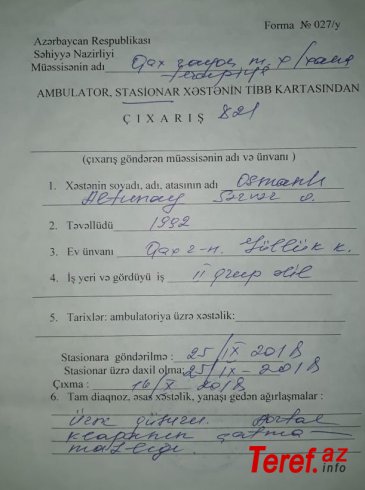 Forma № 027/y
Azərbaycan Respublikası
Səhiyyə Nazirliyi
Müəssisənin adı Qax
AMBULATOR, STASİONAR XƏSTƏNİN TİBB KARTASINDAN
ÇIXARIŞ 821
(çıxarış göndərən müəssisənin adı və ünvanı )
1. Xəstənin soyadı, adı, atasının adı Osmanlı
Altunay Sərvər o.
2. Təvəllüdü 1992
3. Ev ünvanı Qax r-n. Güllük k.
4. İş yeri və gördüyü iş II qrup əlil
5. Tarixlər: ambulatoriya üzrə xəstəlik:
Stasionara göndərilmə : 25/IX 2018
Stasionar üzrə daxil olma: 25/IX-2018
Çıxma : 16/X 2018
6. Tam diaqnoz, əsas xəstəlik, yanaşı gedən ağırlaşmalar :
Ürək qüsuru. Aortal
klapanın çatma
mazlığı
Teref.az
info